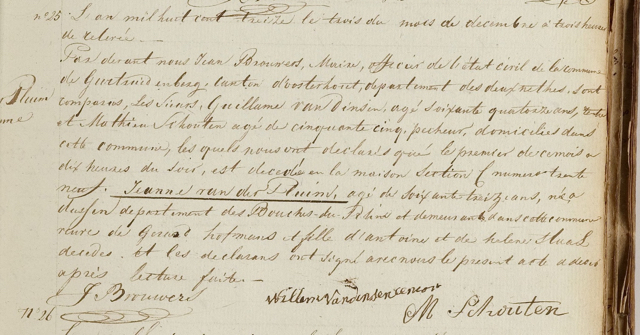 n° 25. L'an mil huit cent treize le trois du mois de decembre à trois heures
de relevée.
Par devant nous Jean Brouwers, Maire, officier de l'état civil de la commune
de Geertruidenberg, canton d'oosterhout, departement des deux nethes, sont
comparus, Les Sieurs, Guillame van Dinsen, agé soixante quatorze ans,
et Mathieu Schouten agé de cinquante cinq, pecheur, domiciliés dans
cette commune, les quels nous ont declarés que le premier de ce mois a
dix heures du soir, est decedée en la maison Section C numero trente
neuf. Jeanne van der Pluim, agé de soixante treize ans, née a
dussen departement des Bouches du Rhin et demeurant dans cette commune
veuve de Gerard hofmans et fille d'antoine et de helene Staal
decedés. et les declarans ont signé avec nous le present acte
après lecture faite.
Pluim
J Brouwers
Willem Vandinsen
M Schouten
N° 26